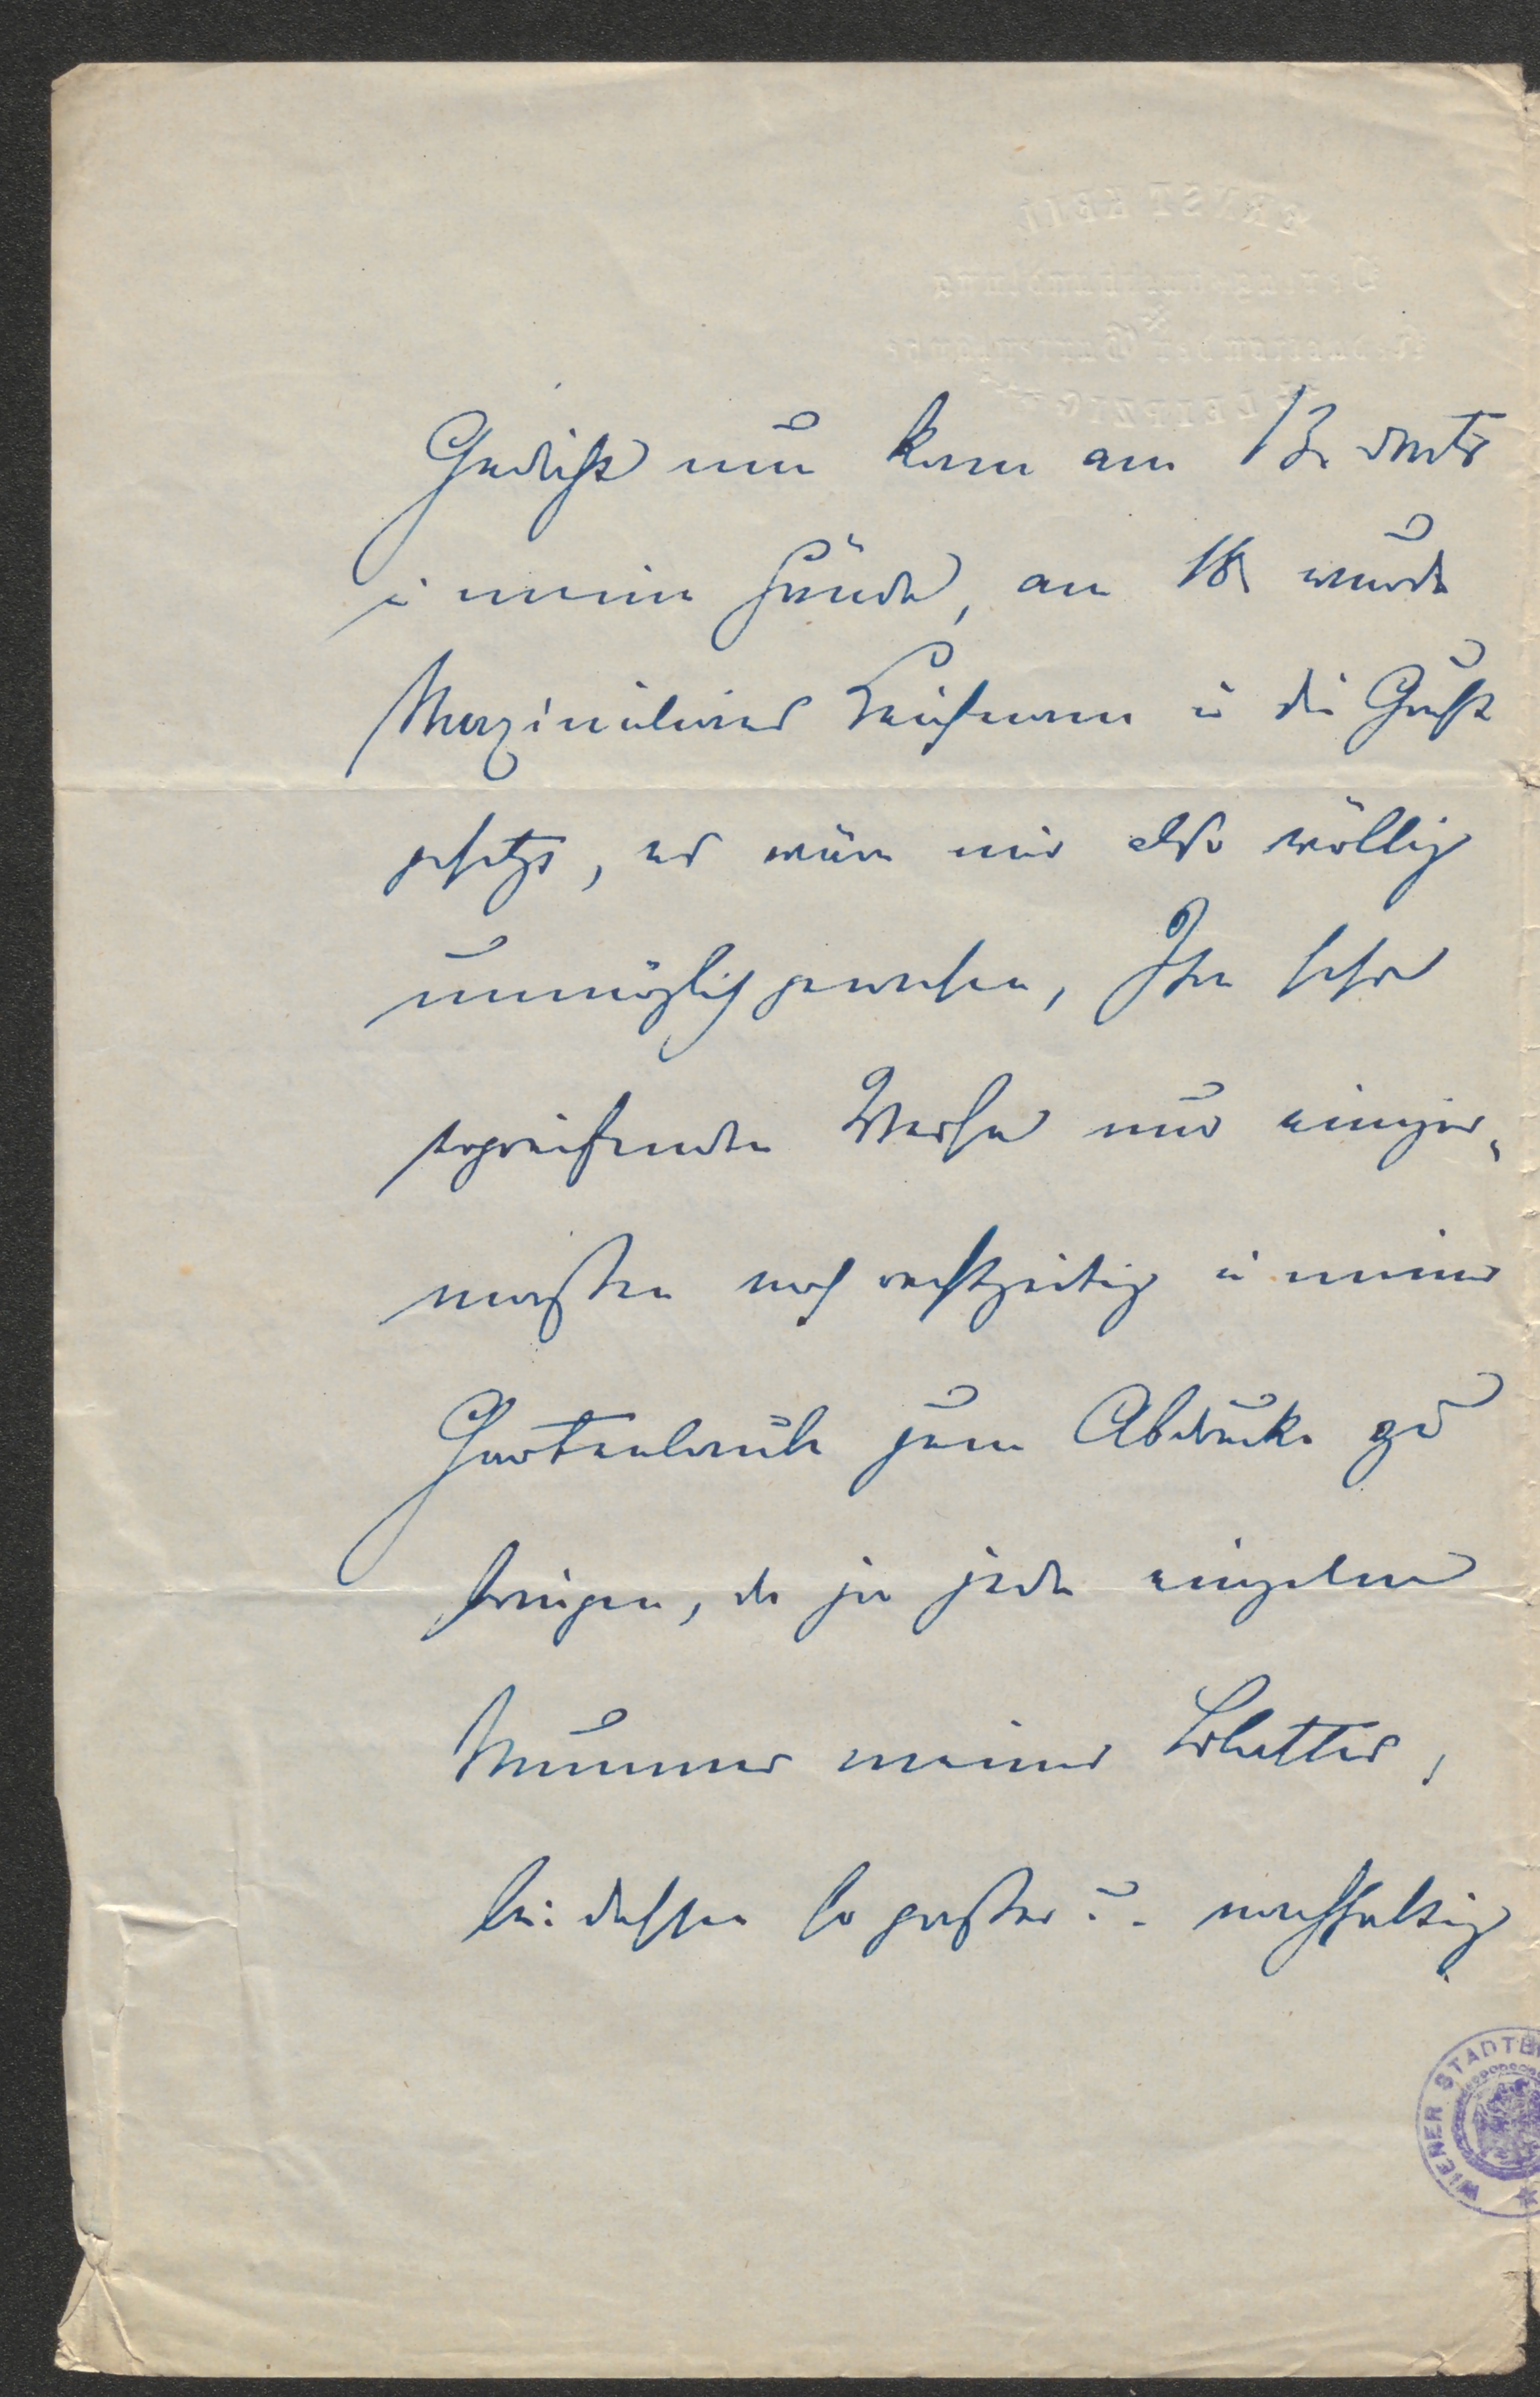 ERNST KEIL
Verlagsbuchhandlung
Redaction der Gartenlaube
LEIPZIG
Gedicht nun kam am 13. dMts
in meine Hände, am 18 wurde
Maximilians Leichnam in die Gruft
gesetzt, es wäre mir also völlig
unmöglich gewesen, Ihre sehr
ergreifenden Verse nur einiger-
maßen noch rechtzeitig in meiner
Gartenlaube zum Abdrucke zu
bringen, da ja jede einzelne
Nummer meines Blattes,
bei dessen so großer u. nachhaltig
WIENER STADTB